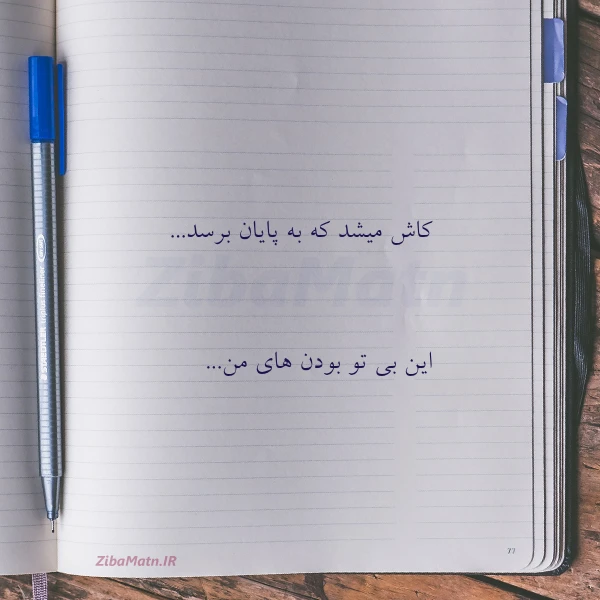 کاش میشد که به پایان برسد...
ZibaMatn
این بی تو بودن های من...
77
ZibaMatn.IR